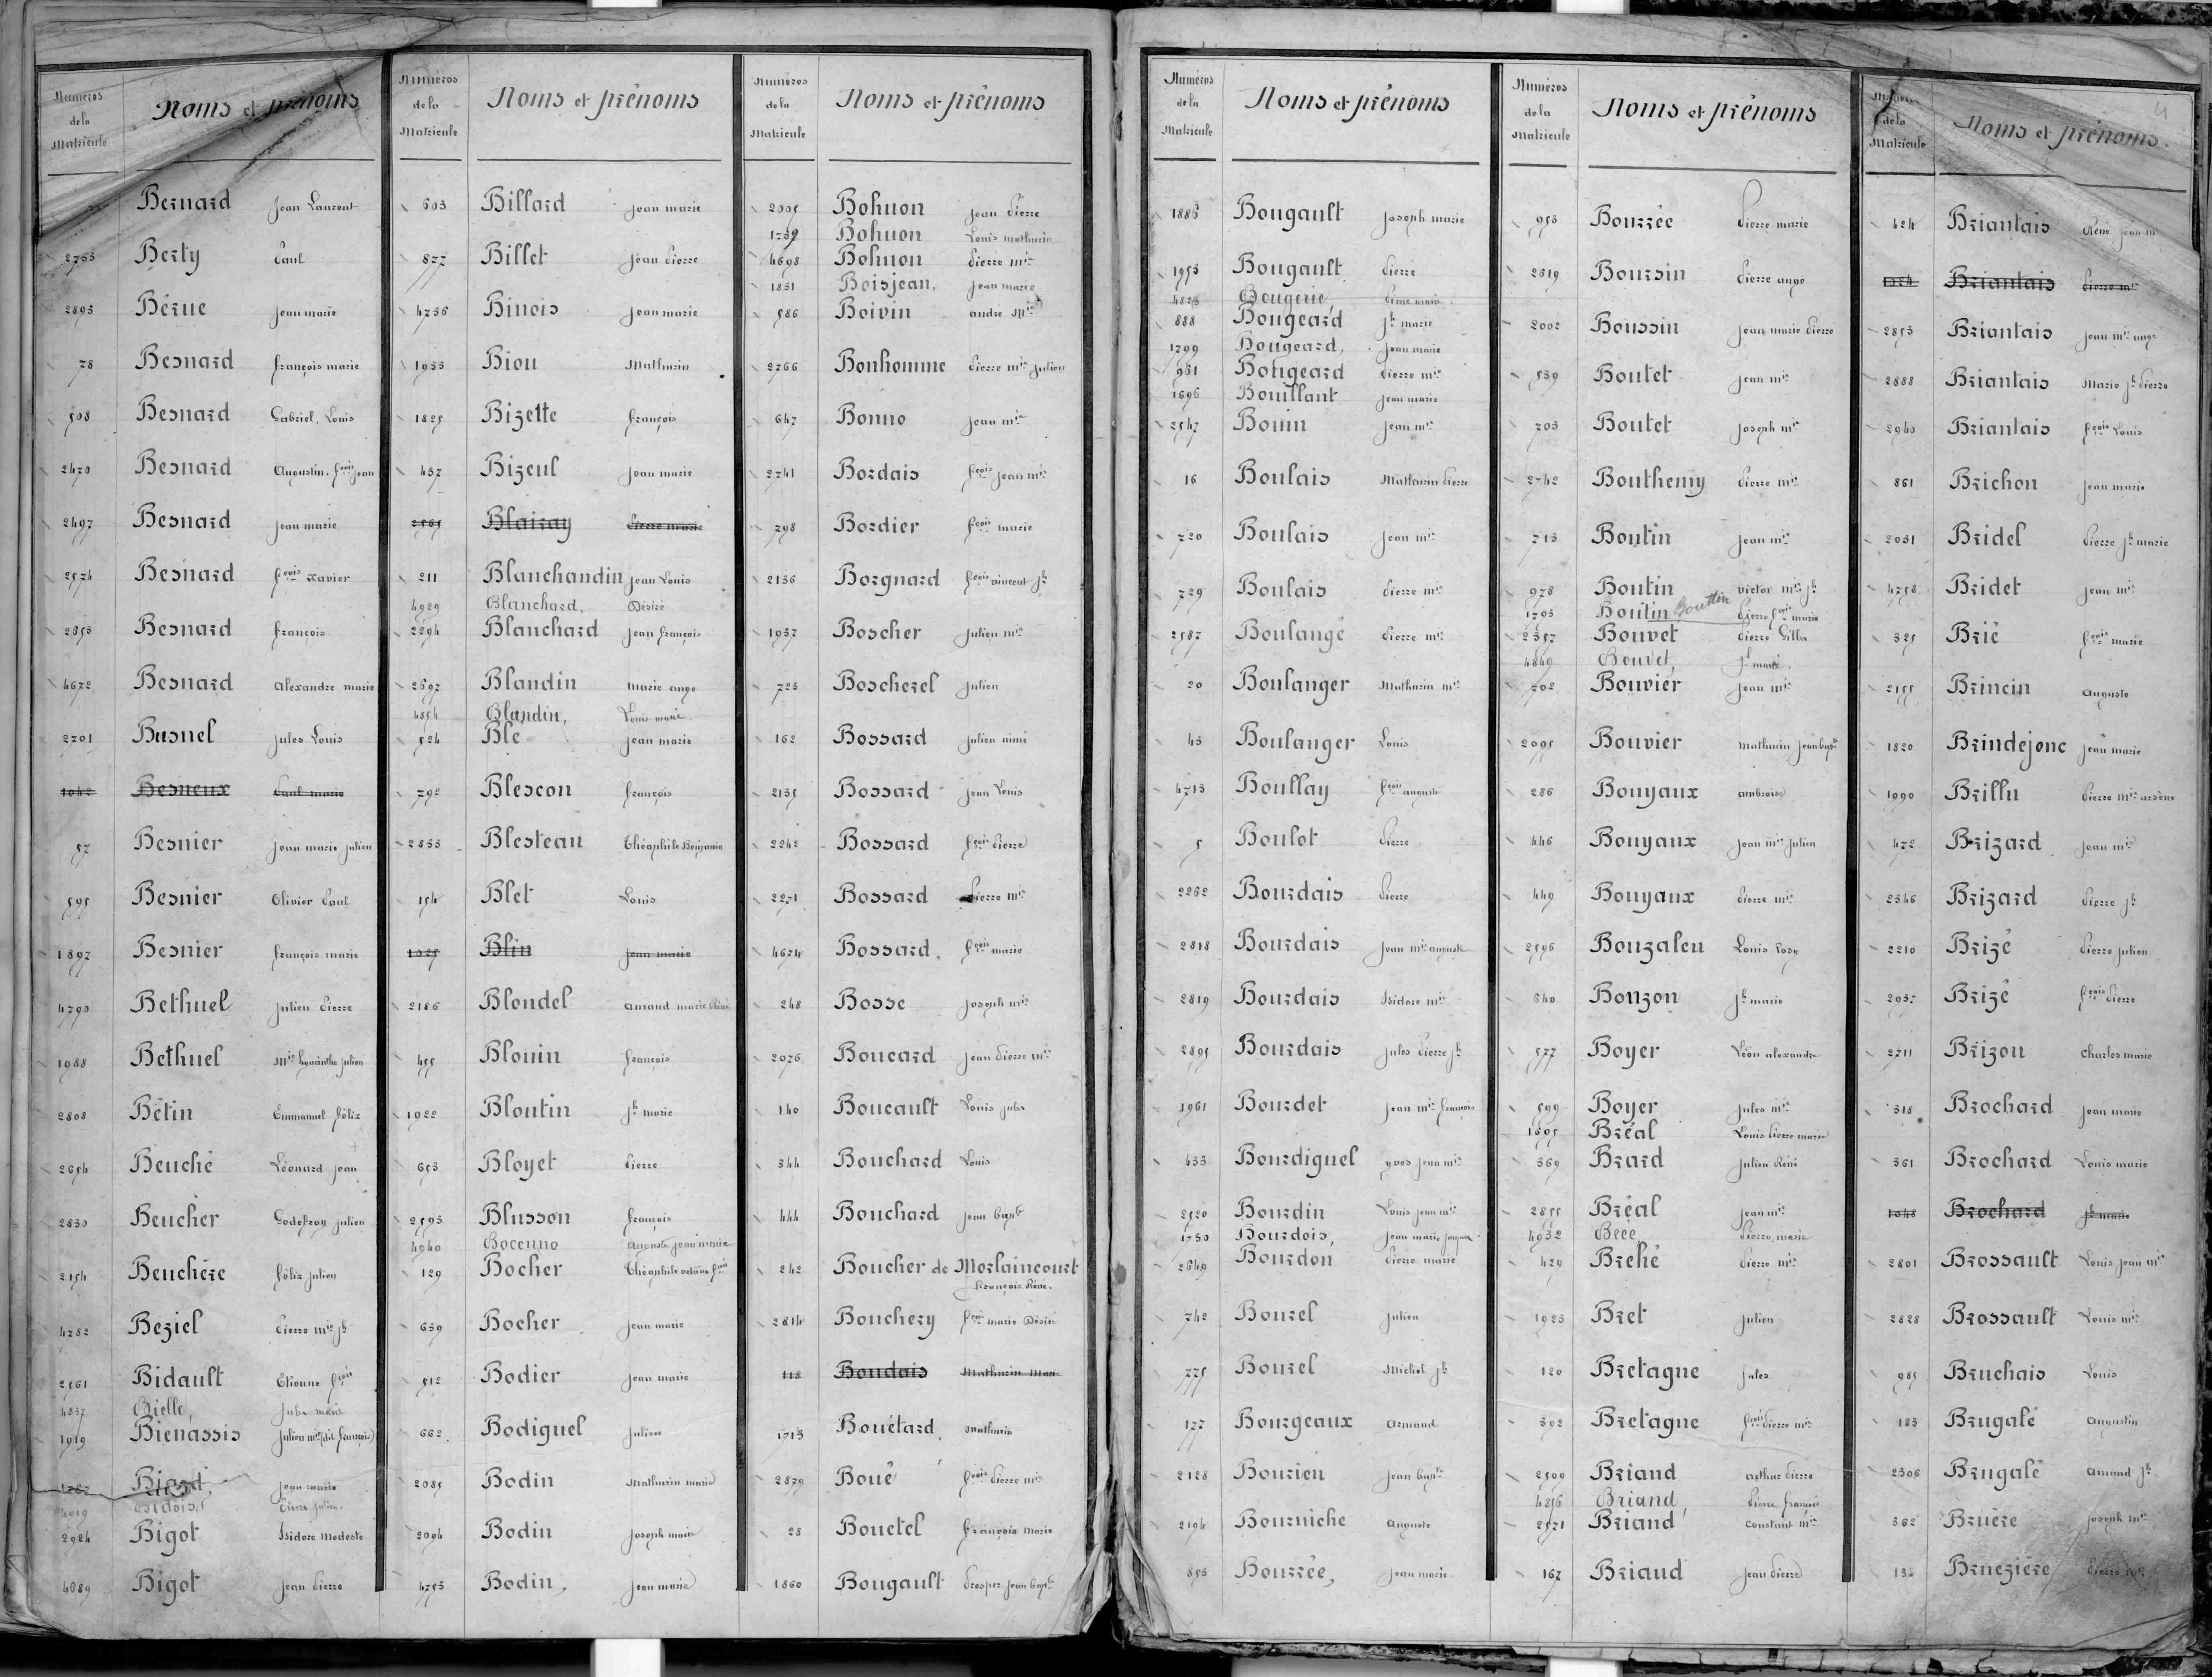 Numéros de la Matricule Noms et prénoms
Bernard Jean Laurent
2753 Berty Paul
2893 Bérue Jean marie
78 Besnard françois marie
508 Besnard Gabriel, Louis
2470 Besnard Augustin, fçois jean
2497 Besnard Jean marie
2574 Besnard fçois xavier
2853 Besnard françois
4672 Besnard alexandre marie
2701 Busnel Jules Louis
1042 Besneux Paul marie
57 Besnier Jean marie Julien
595 Besnier Olivier Paul
1897 Besnier françois marie
4790 Bethuel Julien Pierre
1988 Bethuel Mie hyacinthe Julien
2808 Bétin Emmanuel félix
2654 Beuché Léonard Jean
2830 Beucher Godefroy Julien
2154 Beuchère félix Julien
4782 Beziel Pierre mie jh
2561 Bidault Etienne fçois
4837 Bielle, Jules marie
1919 Bienassis Julien mie (dit françois)
Jean marie
Pierre Julien.
2924 Bigot Isidore Modeste
4689 Bigot Jean Pierre
Numéros de la Matricule Noms et prénoms
603 Billard Jean marie
877 Billet Jean Pierre
4736 Binois Jean marie
1933 Biou Mathurin
1825 Bizette françois
437 Bizeul Jean marie
2565 Blairay Pierre marie
211 Blanchandin Jean Louis
4929 Blanchard, Désiré
2294 Blanchard Jean françois
2697 Blandin Marie ange
4854 Blandin, Louis marie
524 Blé Jean marie
792 Blescon françois
2833 Blesteau Théophile Benjamin
154 Blet Louis
1325 Blin Jean marie
2186 Blondel amand marie
455 Blouin françois
1922 Bloutin jh marie
653 Bloyet Pierre
2593 Blusson françois
4940 Bocenno Auguste jean marie
129 Bocher Théophile octave fçois
639 Bocher Jean marie
512 Bodier Jean marie
662 Bodiguel Julien
2085 Bodin Mathurin marie
2094 Bodin Joseph marie
4753 Bodin, Jean marie
Numéros de la Matricule Noms et prénoms
2005 Bohuon Jean Pierre
1739 Bohuon Louis mathurin
4698 Bohuon Pierre mie
1831 Boisjean, Jean marie
586 Boivin andré Mie
2766 Bonhomme Pierre mie Julien
647 Bonno Jean mie
2741 Bordais fçois Jean mie
798 Bordier fçois marie
2136 Borgnard fçois vincent jh
1937 Boscher Julien mie
723 Boscherel Julien
162 Bossard Julien aimé
2135 Bossard Jean Louis
2242 Bossard fçois Pierre
2271 Bossard Pierre Mie
4674 Bossard, fçois marie
248 Bosse Joseph mie
2076 Boucard Jean Pierre mie
140 Boucault Louis Jules
344 Bouchard Louis
444 Bouchard Jean bapte
242 Boucher de Morlaincourt
François, René.
2814 Bouchery fçois marie Désiré
118 Boudais Mathurin Marie
1713 Bouëtard, Mathurin
2879 Boué fçois Pierre mie
28 Bouetel François Marie
1860 Bougault Prosper Jean bapte
Numéros de la Matricule Noms et prénoms
1886 Bougault Joseph marie
1953 Bougault Pierre
Bougerie,
888 Bougeard jh marie
1799 Bougeard, Jean marie
961 Bougeard Pierre mie
1696 Bouillant Jean marie
2547 Bouin Jean mie
16 Boulais Mathurin Pierre
720 Boulais Jean mie
729 Boulais Pierre mie
2587 Boulangé Pierre mie
20 Boulanger Mathurin mie
43 Boulanger Louis
4713 Boullay fçois auguste
5 Boulot Pierre
2262 Bourdais Pierre
2818 Bourdais Jean mie auguste
2819 Bourdais Isidore mie
2895 Bourdais Jules Pierre jh
1961 Bourdet Jean mie françois
433 Bourdiguel yves Jean mie
2520 Bourdin Louis Jean mie
1730 Bourdois, Jean marie Jacques
2649 Bourdon Pierre marie
742 Bourel Julien
775 Bourel Michel jh
177 Bourgeaux Armand
2128 Bourien Jean bapte
2194 Bourniche Auguste
853 Bourrée, Jean marie
Numéros de la Matricule Noms et prénoms
953 Bourrée Pierre marie
2319 Boursin Pierre ange
2002 Boussin Jean marie Pierre
539 Boutet Jean mie
703 Boutet Joseph mie
2742 Bouthemy Pierre mie
713 Boutin Jean mie
978 Boutin victor mie jh
1793 Boutin Bouttin Pierre fçois marie
2357 Bouvet Pierre Gilles
4849 Bouvet, jh marie.
702 Bouvier Jean mie
2095 Bouvier mathurin Jean bapte
286 Bouyaux ambroise
446 Bouyaux Jean mie Julien
449 Bouyaux Pierre mie
2596 Bouzalen Louis
640 Bouzon jh marie
577 Boyer Léon alexandre
599 Boyer Jules mie
1695 Bréal Louis Pierre marie
369 Brard Julien René
2855 Bréal Jean mie
4932 Pierre marie
429 Brehé Pierre mie
1923 Bret Julien
120 Bretagne Jules
392 Bretagne fçois Pierre mie
2509 Briand arthur Pierre
4856 Briand, Pierre françois
2571 Briand Constant mie
167 Briaud Jean Pierre
Numéros de la Matricule Noms et prénoms.
4
424 Briantais René Jean mie
Briantais Pierre mie
2853 Briantais Jean mie ange
2888 Briantais Marie jh Pierre
2940 Briantais fçois Louis
861 Brichon Jean marie
2031 Bridel Pierre jh marie
4758 Bridet Jean mie
325 Brié fçois marie
2155 Brincin Auguste
1820 Brindejonc Jean marie
1990 Brillu Pierre Mie arsène
472 Brizard Jean mie
2346 Brizard Pierre jh
2210 Brizé Pierre Julien
2937 Brizé fçois Pierre
2711 Brizou Charles marie
318 Brochard Jean marie
361 Brochard Louis marie
1048 Brochard jh marie
2801 Brossault Louis Jean mie
2828 Brossault Louis mie
985 Bruchais Louis
183 Brugalé Augustin
2306 Brugalé Amand jh
362 Bruère Joseph mie
Brunezière Pierre mie